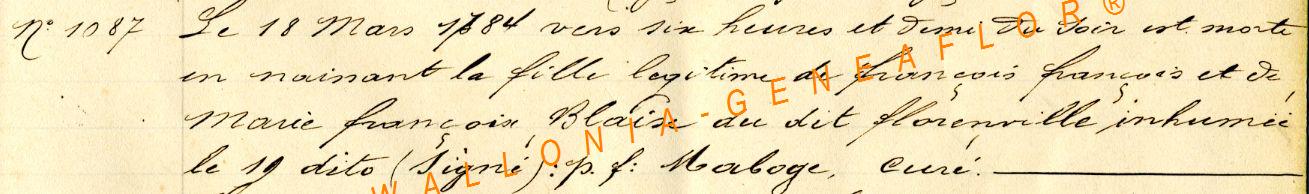 N° 1087 Le 18 Mars 1784 vers six heures et demi du soir est morte
en naissant la fille legitime de françois françois et de
Marie françoise Blaise du dit florenville, inhumée
le 19 dito (Signé): p. f: Maboge, curé.
WALLONIA-GENEAFLOR®